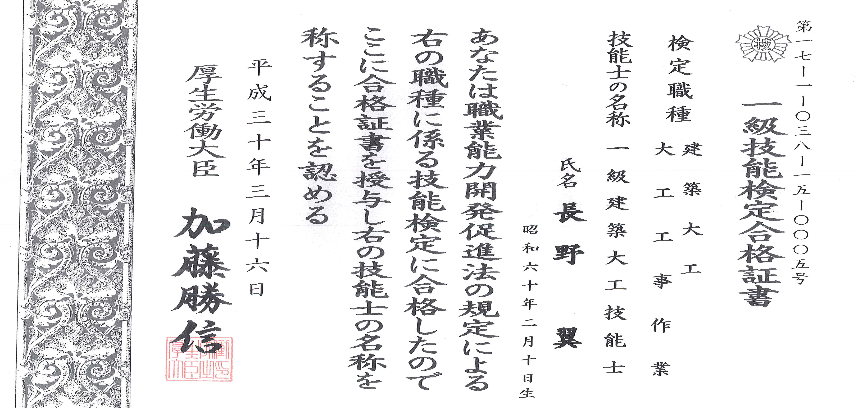 第一七－一－〇三八－一五－〇〇〇五号
一級技能検定合格証書
検定職種
建築大工
大工工事作業
技能士の名称 一級建築大工技能士
氏名 長野 翼
昭和六十年二月十日生
あなたは職業能力開発促進法の規定による
右の職種に係る技能検定に合格したので
ここに合格証書を授与し右の技能士の名称を
称することを認める
平成三十年三月十六日
厚生労働大臣 加藤勝信